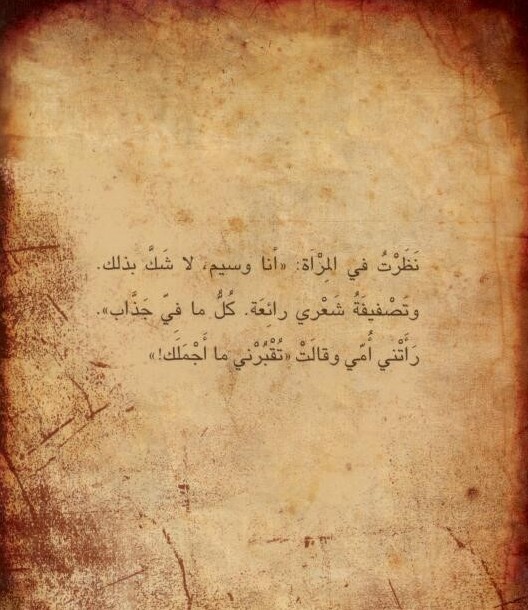 نَظَرْتُ في المِرْآة: «أنا وسيم، لا شَكَّ بذلك.
وتَصْفيفَةُ شَعْري رائِعَة. كُلُّ ما فيّ جَذَّاب».
رَأَتْني أُمّي وقالَتْ «تُقْبُرْني ما أَجْمَلَك!»